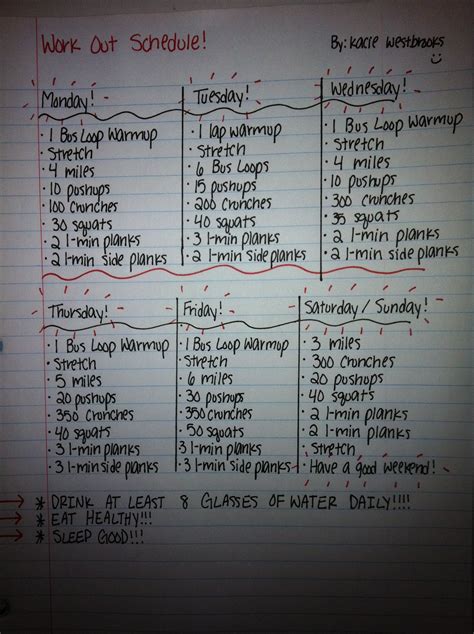 Work Out Schedule!
By: Kacie Westbrooks
Monday!
• 1 Bus Loop Warmup
• Stretch
• 4 miles
• 10 pushups
• 100 Crunches
• 30 squats
• 2 1-min planks
• 2 1-min side planks
Tuesday!
• 1 lap warmup
• Stretch
• 6 Bus Loops
• 15 pushups
• 200 Crunches
• 40 squats
• 3 1-min planks
• 2 1-min side planks
Wednesday!
• 1 Bus Loop Warmup
• Stretch
• 4 miles
• 10 pushups
• 300 crunches
• 35 squats
• 2 1-min planks
• 2 1-min side planks
Thursday!
• 1 Bus Loop Warmup
• Stretch
• 5 miles
• 20 pushups
• 350 Crunches
• 40 squats
• 3 1-min planks
• 3 1-min side planks
Friday!
• 1 Bus Loop Warmup
• Stretch
• 6 miles
• 30 pushups
• 350 crunches
• 50 squats
• 3 1-min planks
• 3 1-min side planks
Saturday / Sunday!
• 3 miles
• 300 crunches
• 20 pushups
• 40 squats
• 2 1-min planks
• 2 1-min planks
• Stretch
• Have a good weekend!
* DRINK AT LEAST 8 GLASSES OF WATER DAILY!!!!
* EAT HEALTHY!!!
* SLEEP GOOD!!!